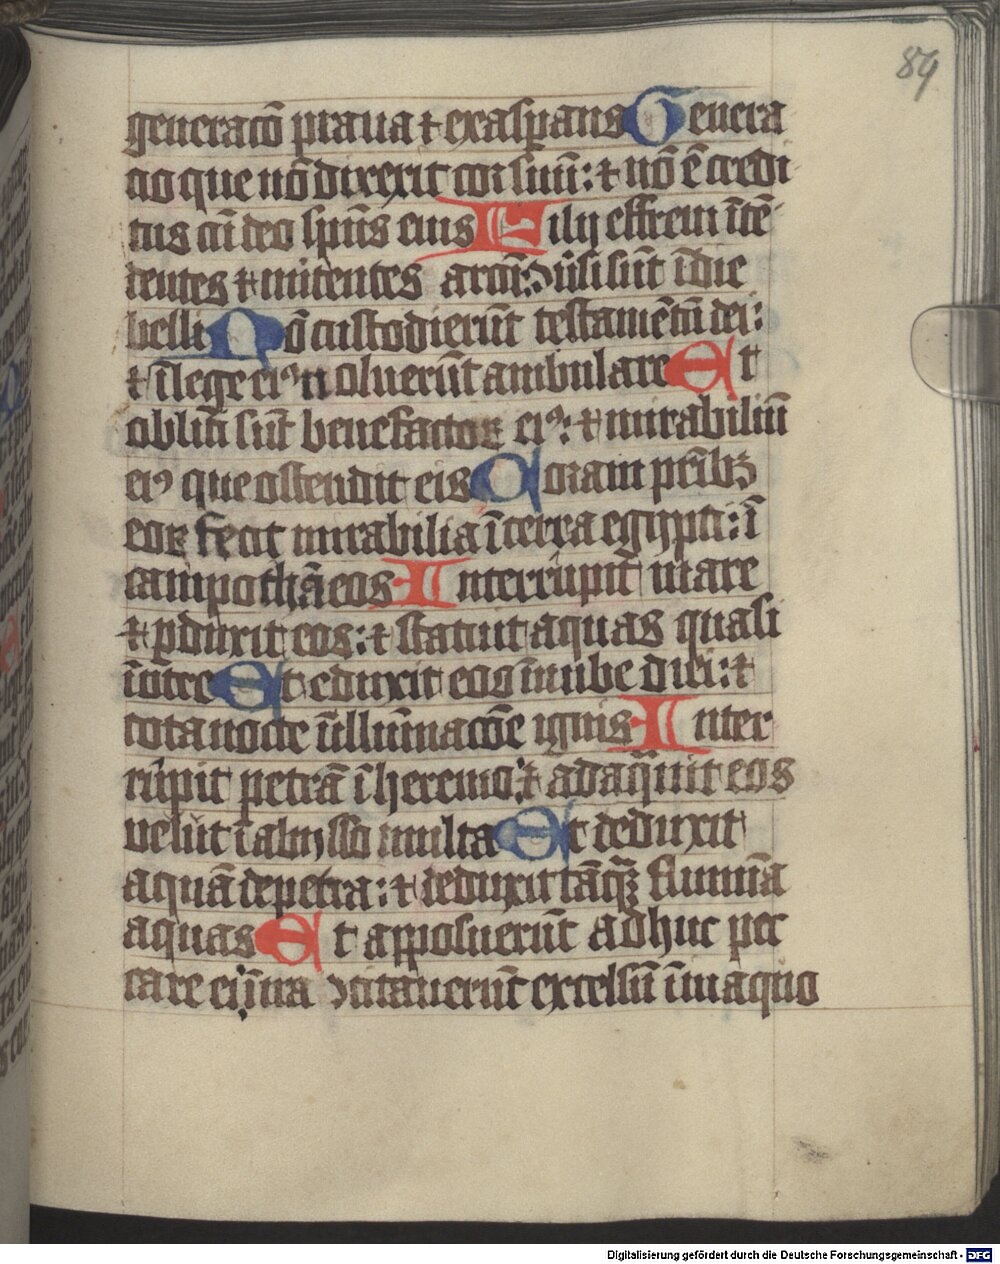 89
generacō praua ⁊ exasꝑans Genera
cio que nō direxit cor suum: ⁊ nō ē credi
tus cū deo spūs eius Filij effrem ītē
dentes ⁊ mittentes arcū: ꝯūsi sūt ī die
belli Nō custodierūt testamētū dei:
⁊ ī lege eiꝰ noluerūt ambulare Et
obliti sūt benefactoꝝ eiꝰ: ⁊ mirabiliū
eiꝰ que ostendit eis Coram pr̄ibꝫ
eoꝝ fecit mirabilia ī terra egypti: ī
campo thaneos Interrupit mare
⁊ ꝑduxit eos: ⁊ statuit aquas quasi
ī utre Et eduxit eos in nube diei: ⁊
tota nocte ī illuīnacōe ignis Inter
rupit petrā ī heremo: ⁊ adaq̄uit eos
velut ī abysso multa Et deduxit
aquā de petra: ⁊ deduxit tāqꝫ flumīa
aquas Et apposuerūt adhuc pec
care ei: ī ira ꝯcitauerūt excelsū ī inaquo
Digitalisierung gefördert durch die Deutsche Forschungsgemeinschaft - DFG